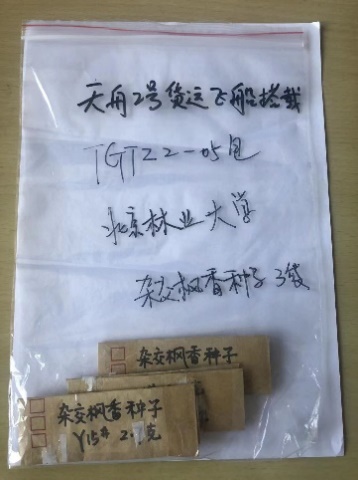 天舟2号货运飞船搭载
TGTZ2-05包
北京林业大学
杂交枫香种子3袋
杂交枫香种子
杂交枫香种子
Y15#
克